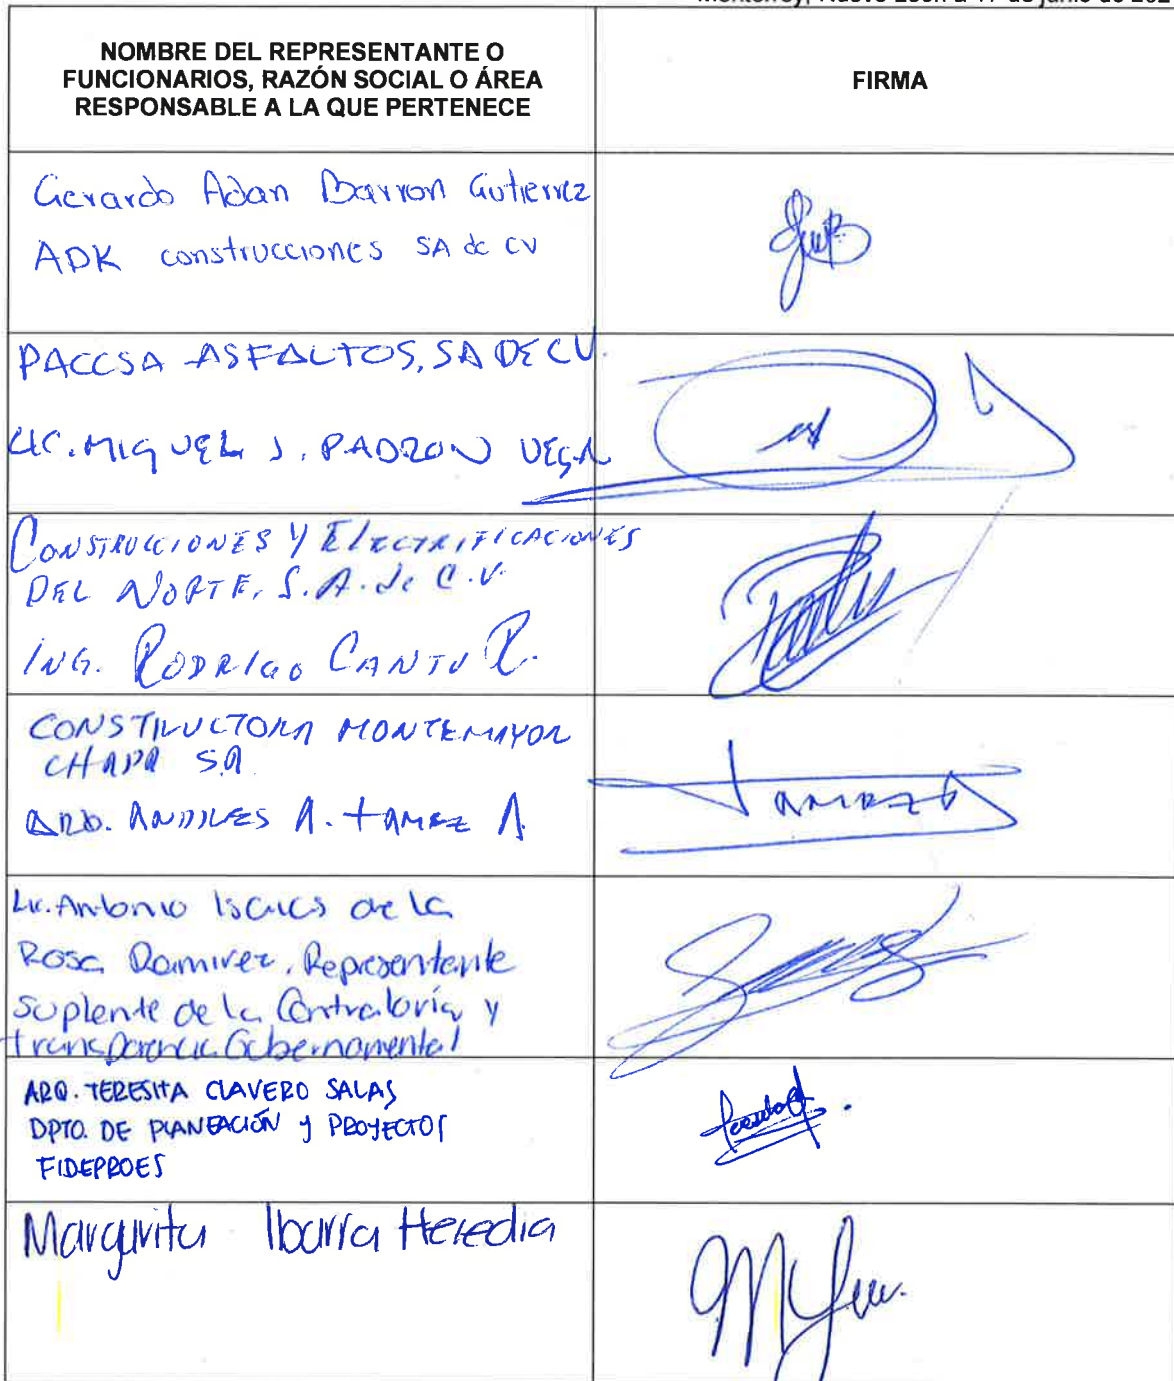 Monterrey, Nuevo León a 17 de junio de 202
NOMBRE DEL REPRESENTANTE O
FUNCIONARIOS, RAZÓN SOCIAL O ÁREA
RESPONSABLE A LA QUE PERTENECE
FIRMA
Gerardo Adan Barron Gutierrez
ADK construcciones SA de CV
PACCSA ASFALTOS, SA DE CV.
LIC. MIGUEL J. PADRON VEGA
CONSTRUCCIONES Y ELECTRIFICACIONES
DEL NORTE, S.A. de C.V.
ING. RODRIGO CANTU R.
CONSTRUCTORA MONTEMAYOR
CHAPA SA
ARQ. ANDRES A. TAMEZ A
TAMEZ
Lic. Antonio Isaias de la
Rosa Ramirez, Representante
Suplente de la Contraloría y
transparencia Gubernamental
ARQ. TERESITA CLAVERO SALAS
DPTO. DE PLANEACIÓN y PROYECTOS
FIDEPROES
Margarita Ibarra Heredia